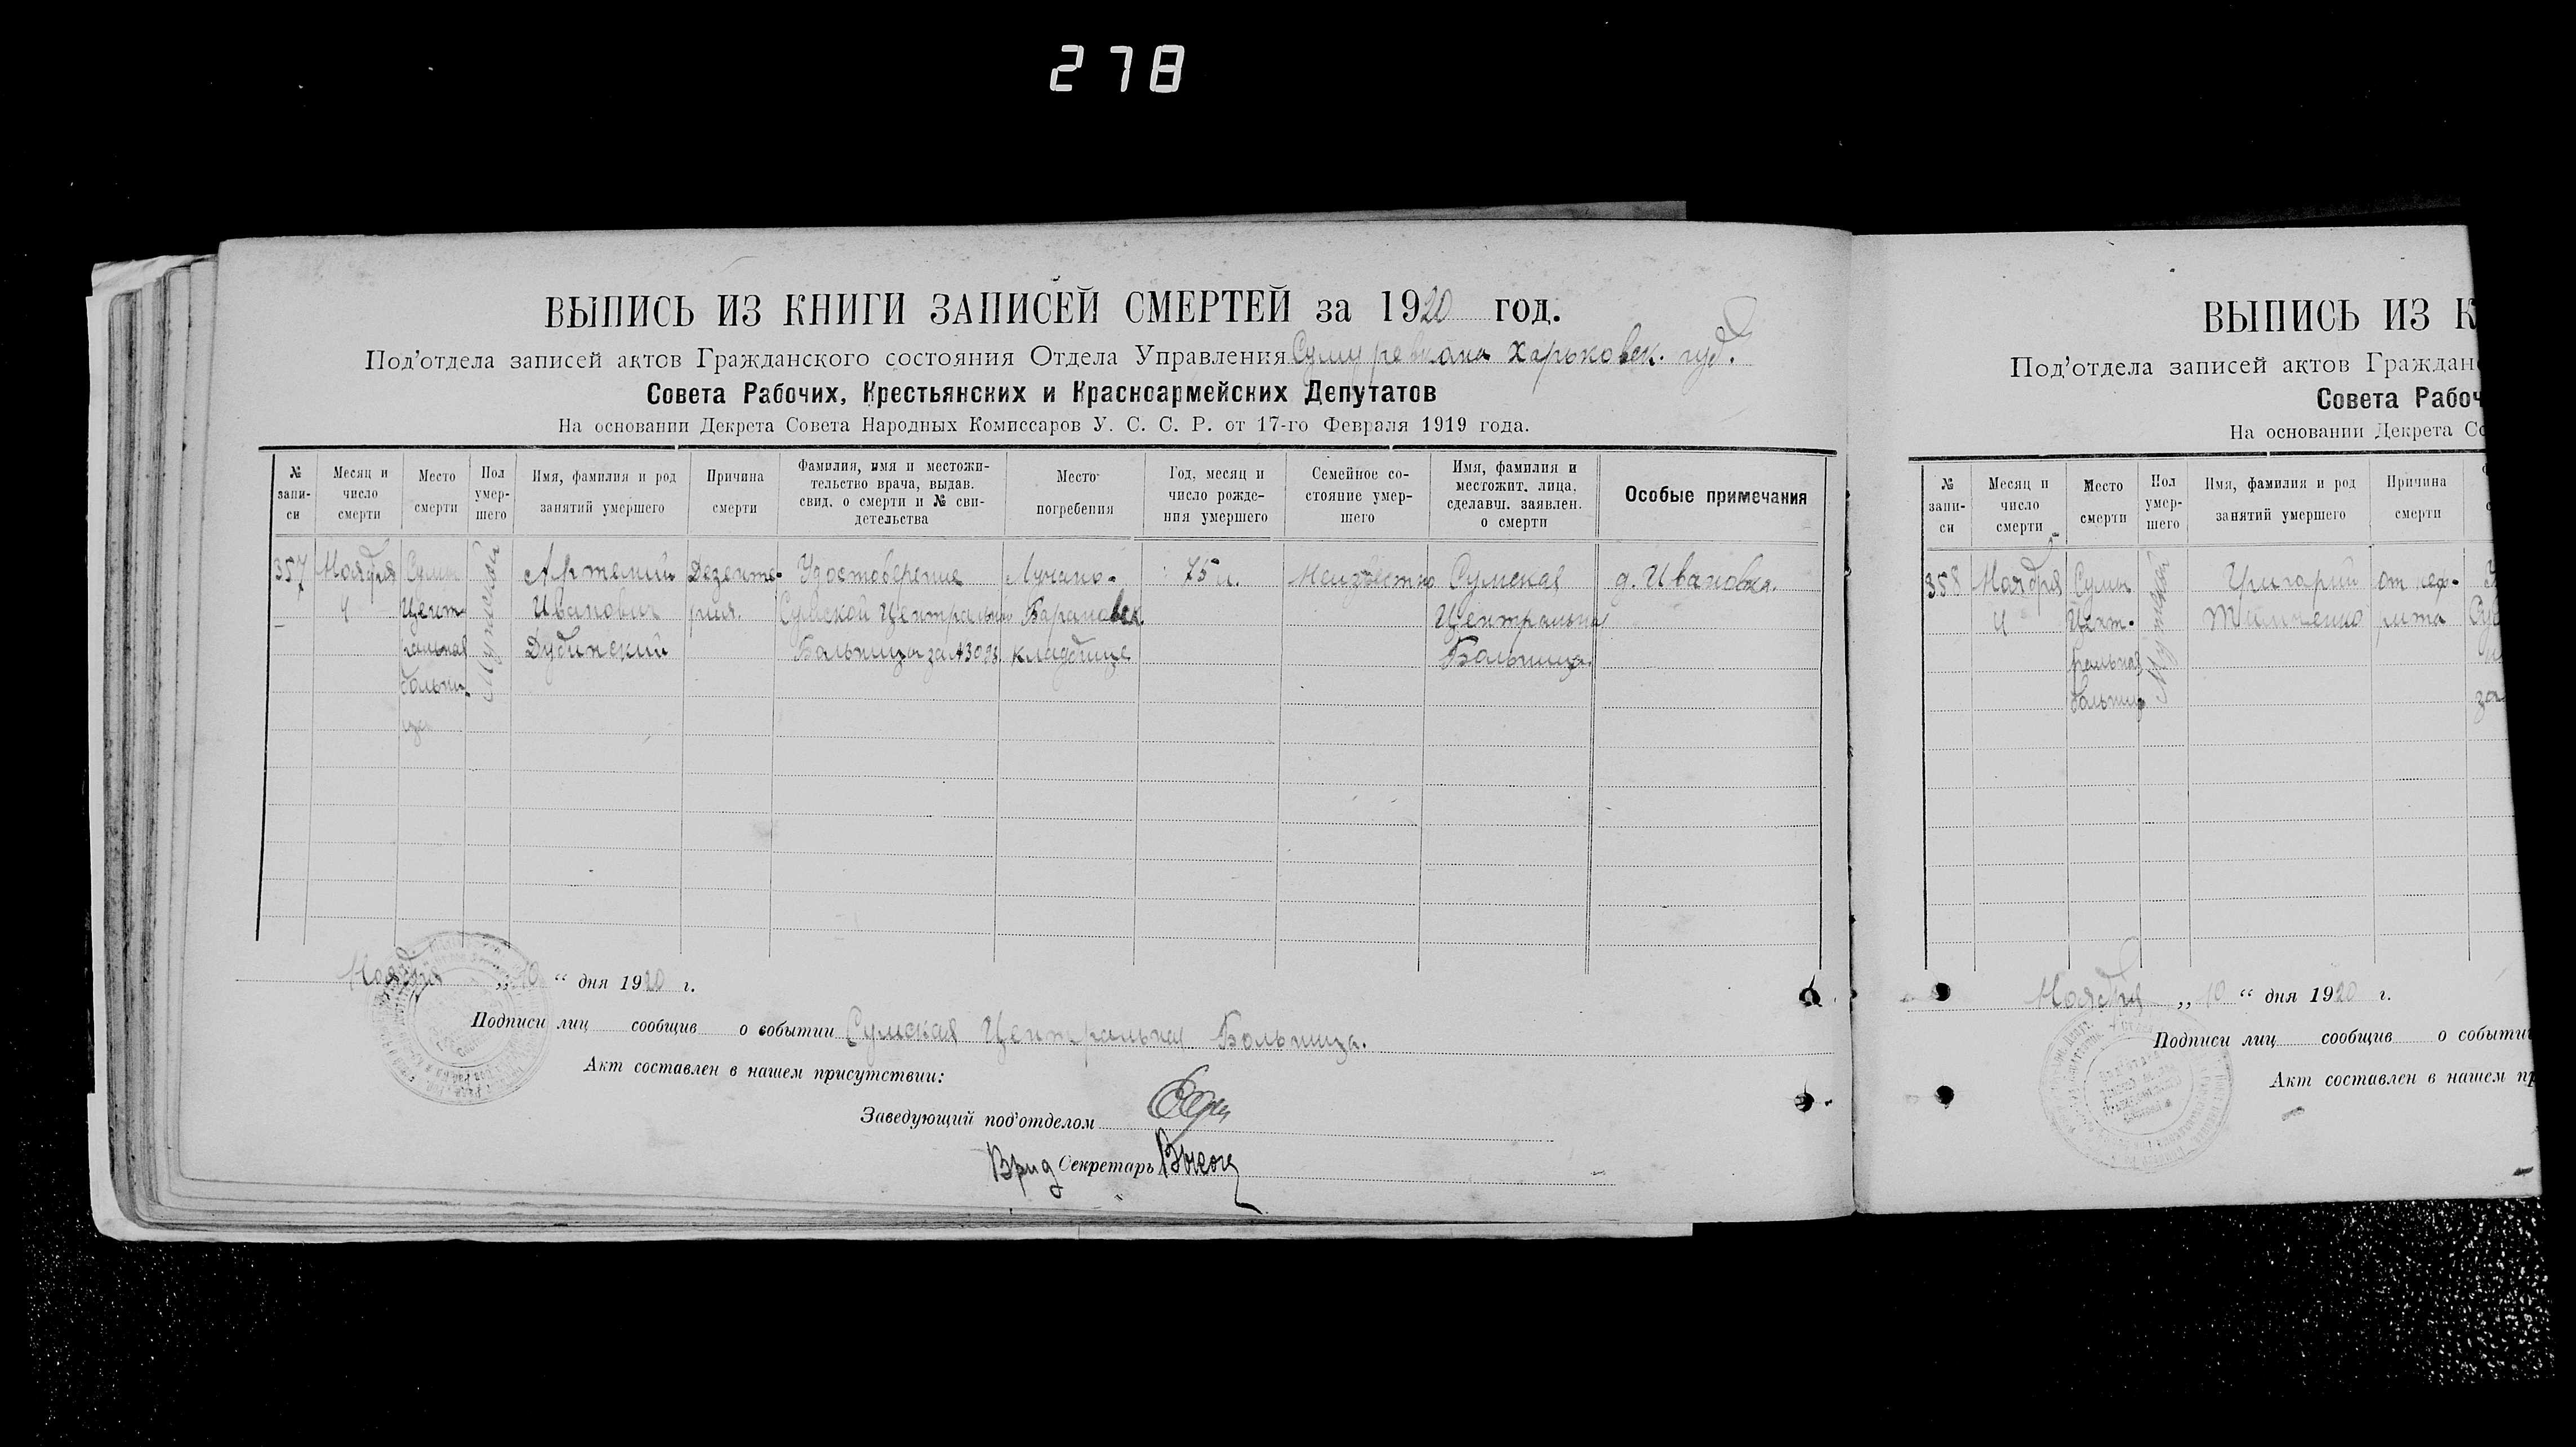 278
ВЫПИСЬ ИЗ КНИГИ ЗАПИСЕЙ СМЕРТЕЙ за 1920 год.
Под'отдела записей актов Гражданского состояния Отдела Управления Харьковск. губ.
Совета Рабочих, Крестьянских и Красноармейских Депутатов
На основании Декрета Совета Народных Комиссаров У. С. С. Р. от 17-го Февраля 1919 года.
№ запи-
си
Месяц и
число
смерти
Место
смерти
Пол
умер-
шего
Имя, фамилия и род
занятий умершего
Причина
смерти
Фамилия, имя и местожи-
тельство врача, выдав.
свид. о смерти и № сви-
детельства
Место
погребения
Год, месяц и
число рожде-
ния умершего
Семейное со-
стояние умер-
шего
Имя, фамилия и
местожит. лица,
сделавш. заявлен.
о смерти
Особые примечания
357
Ноября
4
Сумы
Цент-
ральная
больни-
ца
Мужской
Артемий
Иванович
Дубинский
Дезенте-
рия.
Удостоверение
Сумской Центральн
Больницы за №3098
Лучано-
Барановск.
кладбище
75 л.
Неизвестно
Сумская
Центральна
Больница.
д. Ивановка.
Ноября „ 10 “ дня 1920 г.
Подписи лиц сообщив о событии Сумская Центральная Больница.
Акт составлен в нашем присутствии:
Заведующий под'отделом
Врид Секретарь
ВЫПИСЬ ИЗ К
Под'отдела записей актов Граждан
Совета Рабоч
На основании Декрета Со
№ запи-
си
Месяц и
число
смерти
Место
смерти
Пол
умер-
шего
Имя, фамилия и род
занятий умершего
Причина
смерти
358
Ноября
4
Сумы
Цент-
ральная
больниц
Мужской
Григорий
от неф-
рита
за
Ноября „ 10 “ дня 1920 г.
Подписи лиц сообщив о событии
Акт составлен в нашем пр